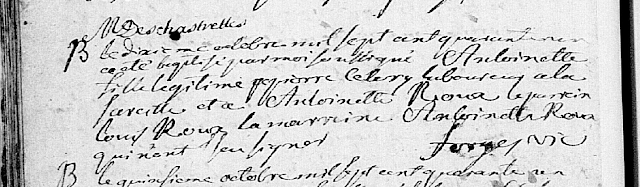 M Deschastrettes
B le dixieme octobre mil sept cent quarante un
a eté baptisé par moi soussigné Antoinette
fille legitime de pierre laboureur a la
et de Antoinette Roux le parrain
Louis Roux la marraine Antoinette Roux
qui n'ont seu signer
B le quinsieme octobre mil sept cent quarante un